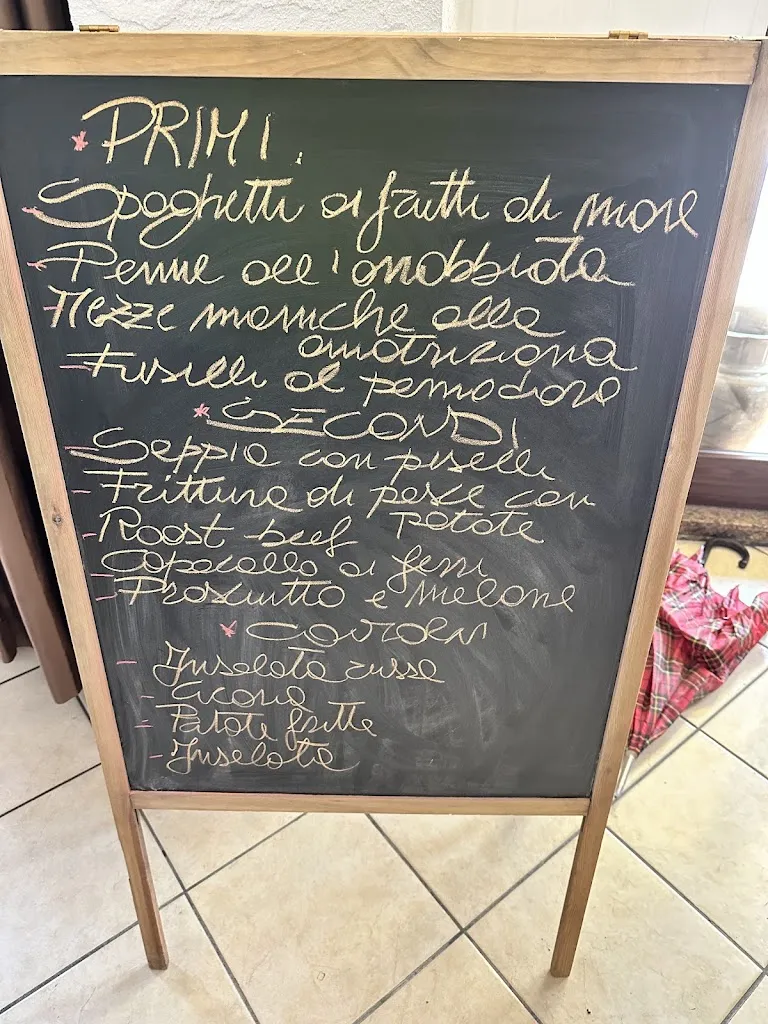 * PRIMI.
- Spaghetti ai frutti di mare
- Penne all'arrabbiata
- Mezze maniche alla
amatriciana
- Fusilli al pomodoro
* SECONDI
- Seppia con piselli
- Frittura di pesce con
patate
- Roast beef
- Capocollo ai ferri
- Prosciutto e melone
* CONTORNI
- Insalata russa
- Cicoria
- Patate fritte
- Insalata